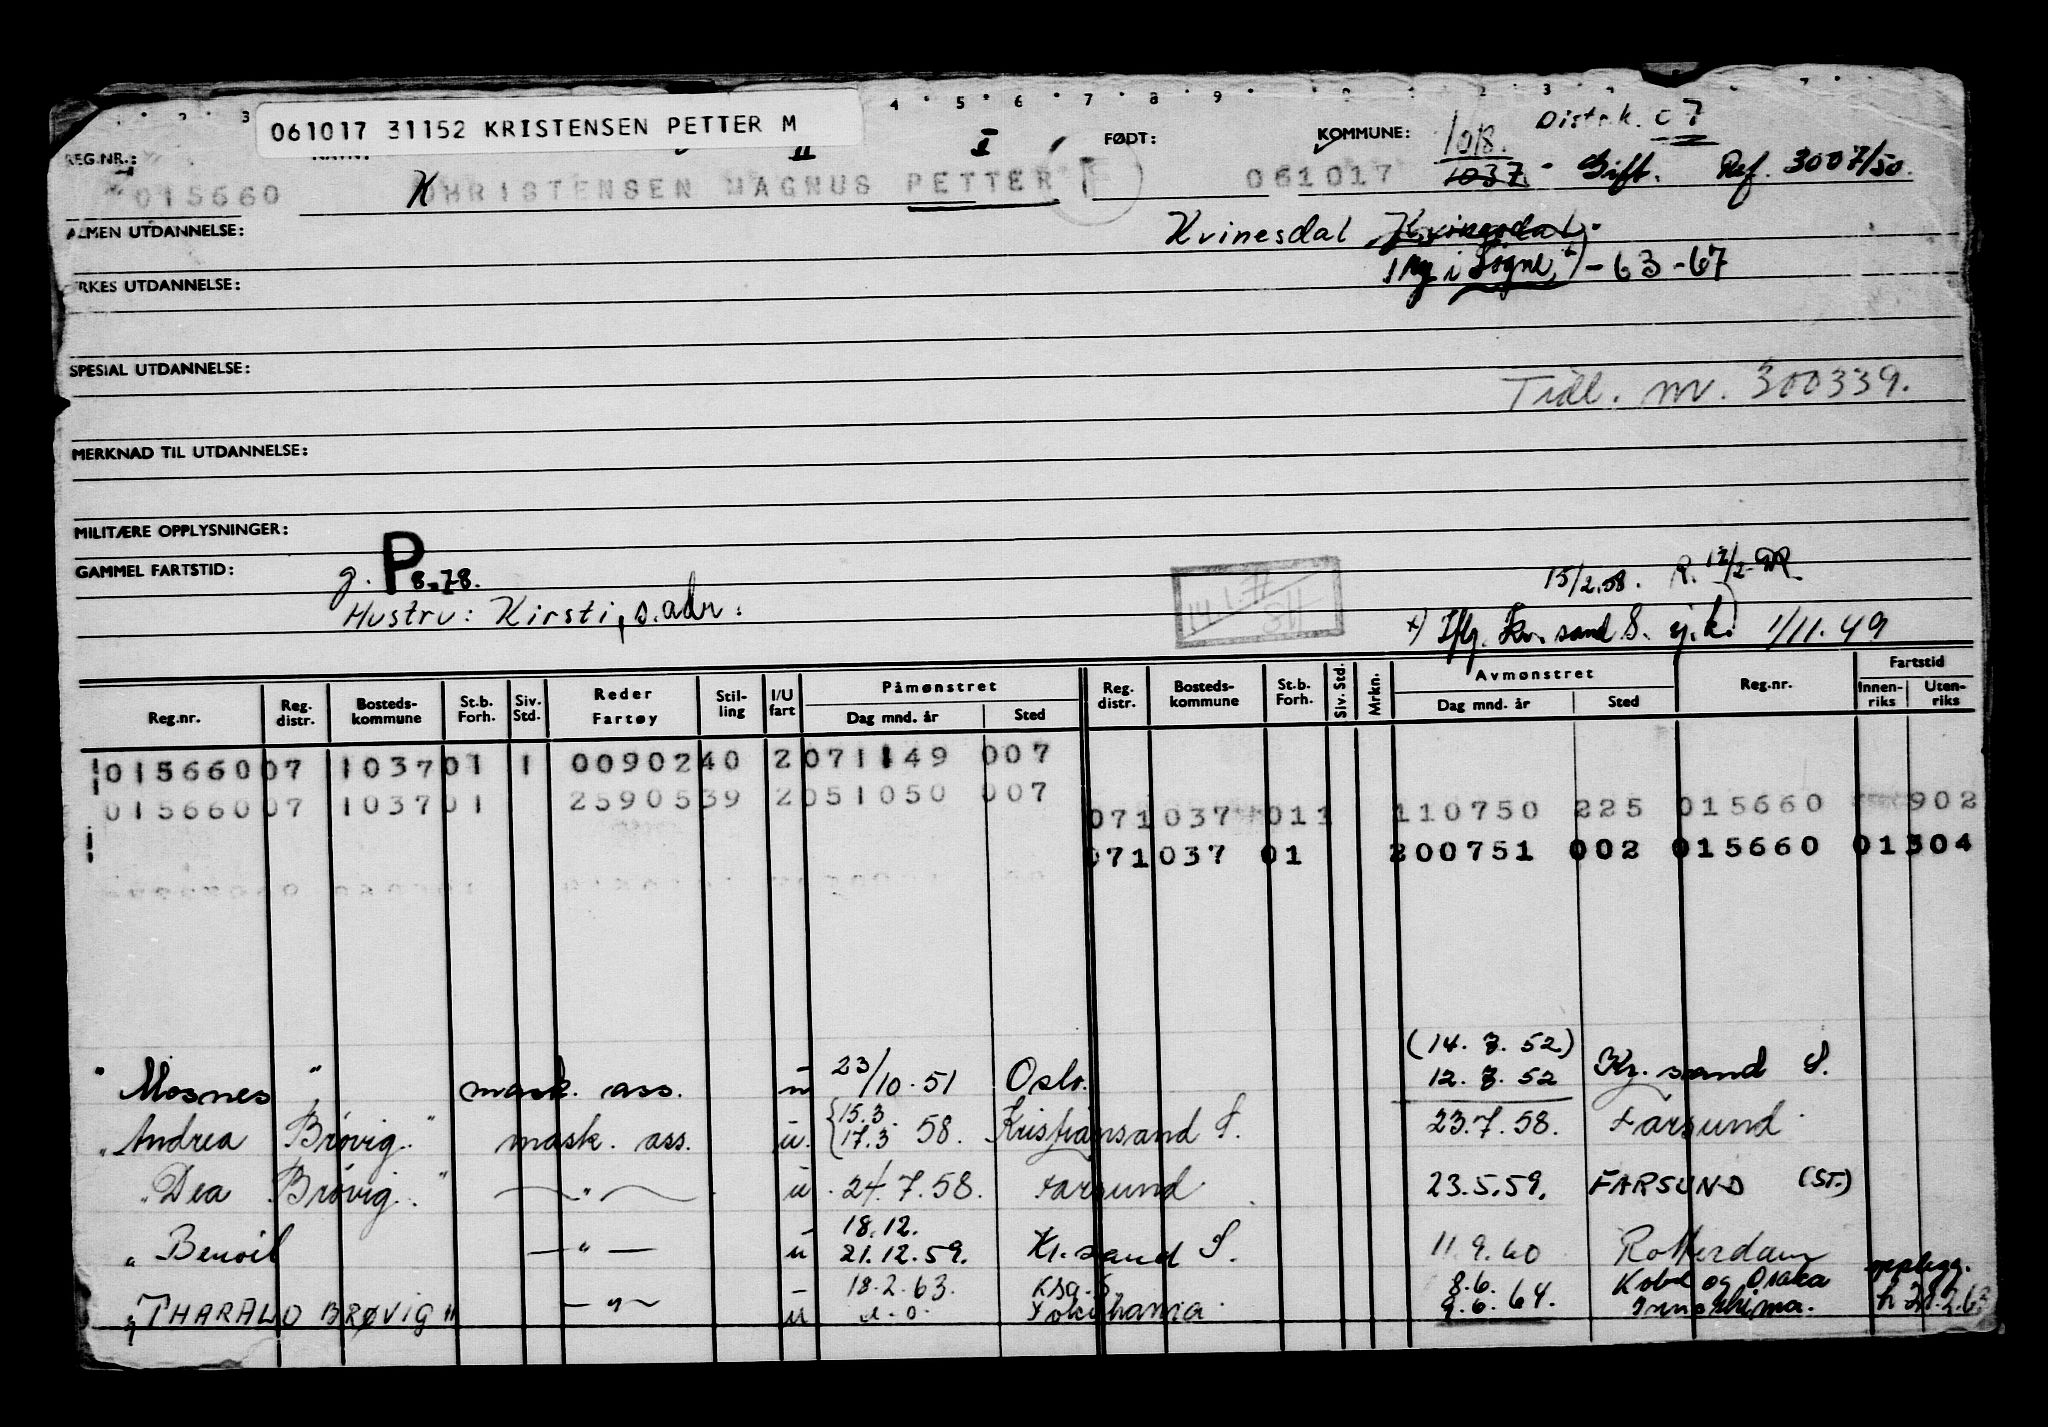 061017 31152 KRISTENSEN PETTER M
FØDT: KOMMUNE: 1018. Distrk. 07
REG.NR.: II I
015660 KHRISTENSEN MAGNUS PETTER F 061017 1037 - Gift. Ref. 3007/50.
ALMEN UTDANNELSE: Kvinesdal Kvinesdal.
YRKES UTDANNELSE: i Søgne x) -63-67
SPESIAL UTDANNELSE:
Tidl. nr. 300339.
MERKNAD TIL UTDANNELSE:
MILITÆRE OPPLYSNINGER:
GAMMEL FARTSTID: g. P 8-78. 15/2.58. R. 17/2-
Hustru: Kirsti, s. adr:
x) Iflg. Kr. sand S. sj.k. 1/11.49
Reg.nr. Reg. distr. Bosteds-kommune St.b. Forh. Siv. Std. Reder Fartøy Stil-ling I/U fart Påmønstret Dag mnd. år Sted Reg. distr. Bosteds-kommune St.b. Forh. Siv. Std. Mrkn. Avmønstret Dag mnd. år Sted Reg.nr. Fartstid Innen-riks Uten-riks
015660 07 1037 01 1 00902 40 2 071149 007
015660 07 1037 01 25905 39 2 051050 007
07 1037 011 110750 225 015660 902
07 1037 01 200751 002 015660 01 304
" Mosnes " mask. ass. u 23/10.51 Oslo. (14.7.52) 12.7.52 Kr. sand S.
" Andrea Brøvig " mask. ass. u. {15.3. 17.3 58. Kristiansand S. 23.7.58. Farsund
" Dea Brøvig " — " — u. 24.7.58. Farsund 23.5.59. FARSUND (ST.)
" Benoil — " — u 18.12. 21.12.59. Kr. sand S. 11.9.60 Rotterdam
" THARALD BRØVIG " — " — u 18.2.63. Ksa. S. d.o. Yokohama 8.6. 9.6.64. Kobe og Osaka Innoshima. opplegg.